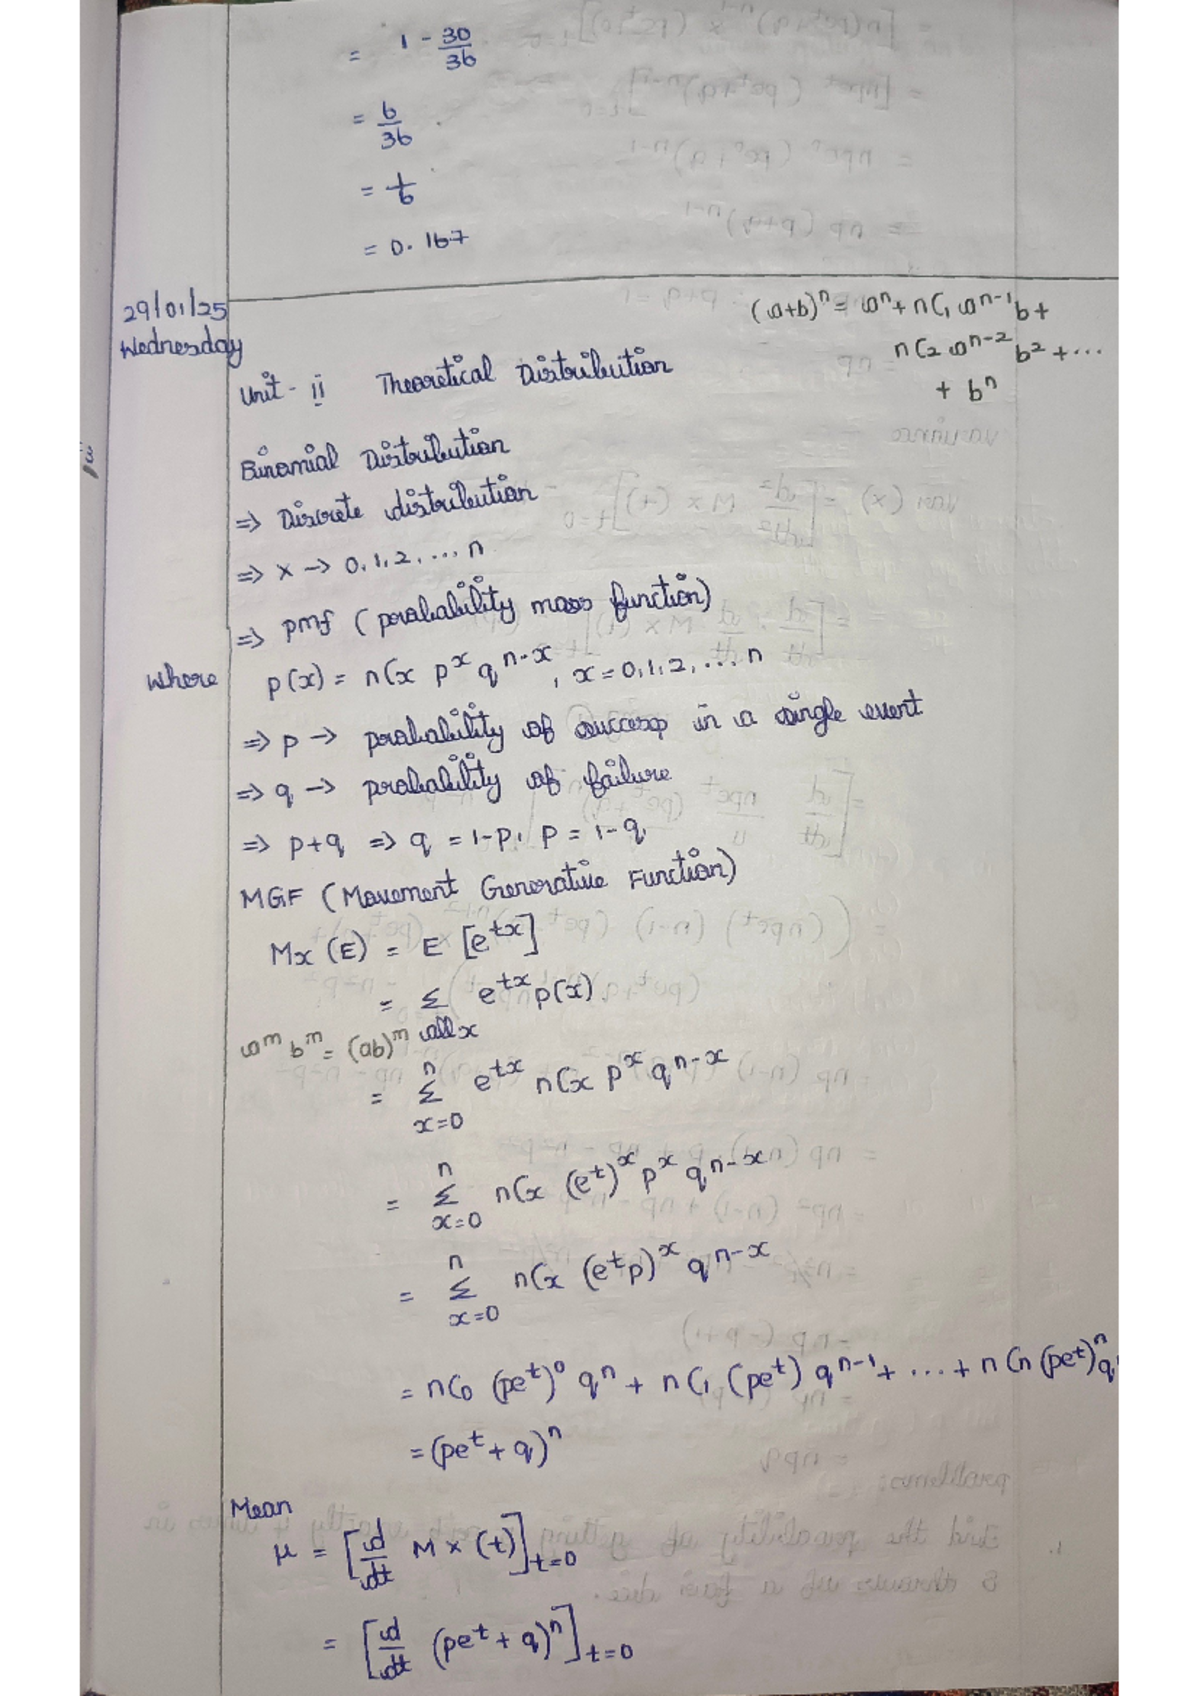 = 1 - 30/36
= 6/36
= 1/6
= 0.167
29/01/25
Wednesday
(a+b)^n = a^n + nC₁ a^(n-1) b +
nC₂ a^(n-2) b² + ...
+ b^n
Unit - ii Theoretical Distribution
Binomial Distribution
=> Discrete distribution
=> x -> 0,1,2,...n
=> pmf (probability mass function)
where p(x) = nCx p^x q^(n-x), x = 0,1,2,...n
=> p -> probability of success in a single event
=> q -> probability of failure
=> p+q => q = 1-p, p = 1-q
MGF (Movement Generative Function)
Mx (E) = E [e^(tx)]
= Σ e^(tx) p(x)
all x
a^m b^m = (ab)^m
= Σ_(x=0)^n e^(tx) nCx p^x q^(n-x)
= Σ_(x=0)^n nCx (e^t)^x p^x q^(n-x)
= Σ_(x=0)^n nCx (e^t p)^x q^(n-x)
= nC₀ (pe^t)^0 q^n + nC₁ (pe^t) q^(n-1) + ... + nCn (pe^t)^n q
= (pe^t + q)^n
Mean
μ = [d/dt Mx (t)]_(t=0)
= [d/dt (pe^t + q)^n]_(t=0)